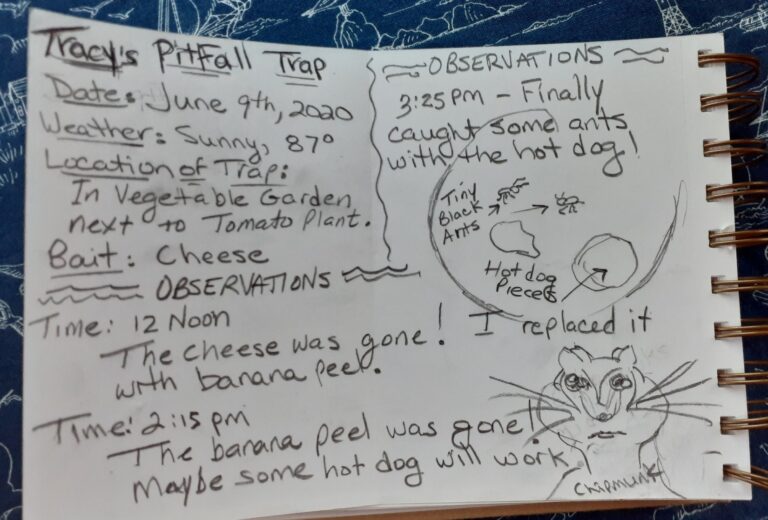 Tracy's Pitfall Trap
Date: June 9th, 2020
Weather: Sunny, 87°
Location of Trap:
In Vegetable Garden
next to Tomato Plant.
Bait: Cheese
OBSERVATIONS
Time: 12 Noon
The cheese was gone! I replaced it
with banana peel.
Time: 2:15 pm
The banana peel was gone!
Maybe some hot dog will work!
OBSERVATIONS
3:25 pm - Finally
caught some ants
with the hot dog!
Tiny
Black
Ants
Hot dog
Pieces
Chipmunk